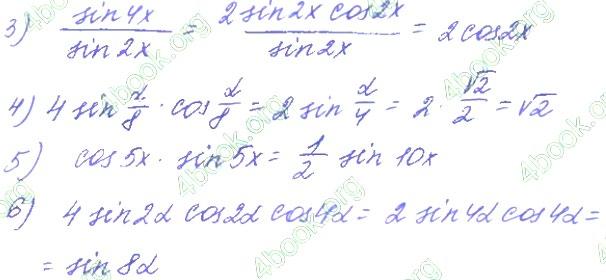 3) sin4x / sin2x = 2sin2x cos2x / sin2x = 2cos2x
4) 4 sin α/8 · cos α/8 = 2 sin α/4 = 2 · √2/2 = √2
5) cos5x · sin5x = 1/2 sin10x
6) 4 sin2α cos2α cos4α = 2 sin4α cos4α =
= sin8α
4book.org